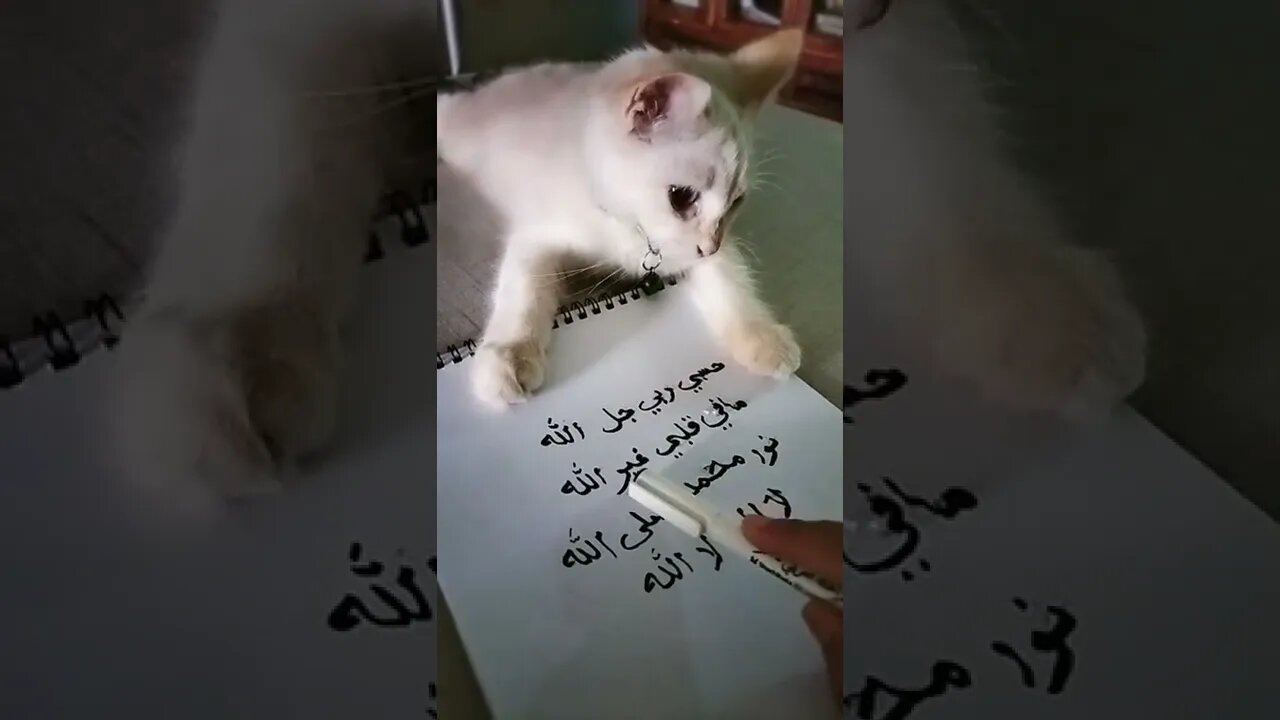 حسبي ربي جل الله
مافي قلبي غير الله
نور محمد صلى الله
لا الله